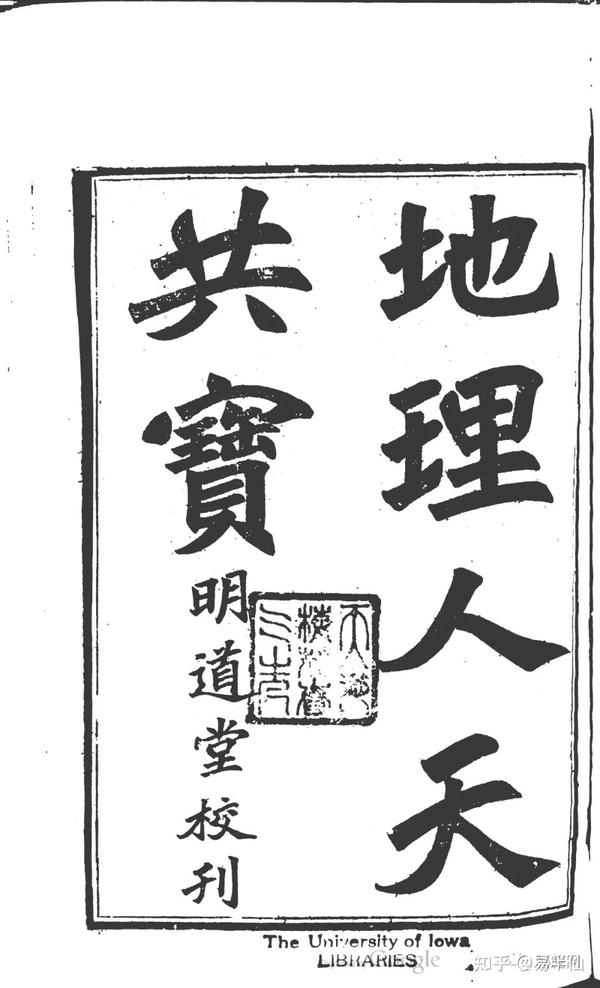 地理人天
共寶
明道堂校刊
The University of Iowa
LIBRARIES
Google
知乎 @易半仙